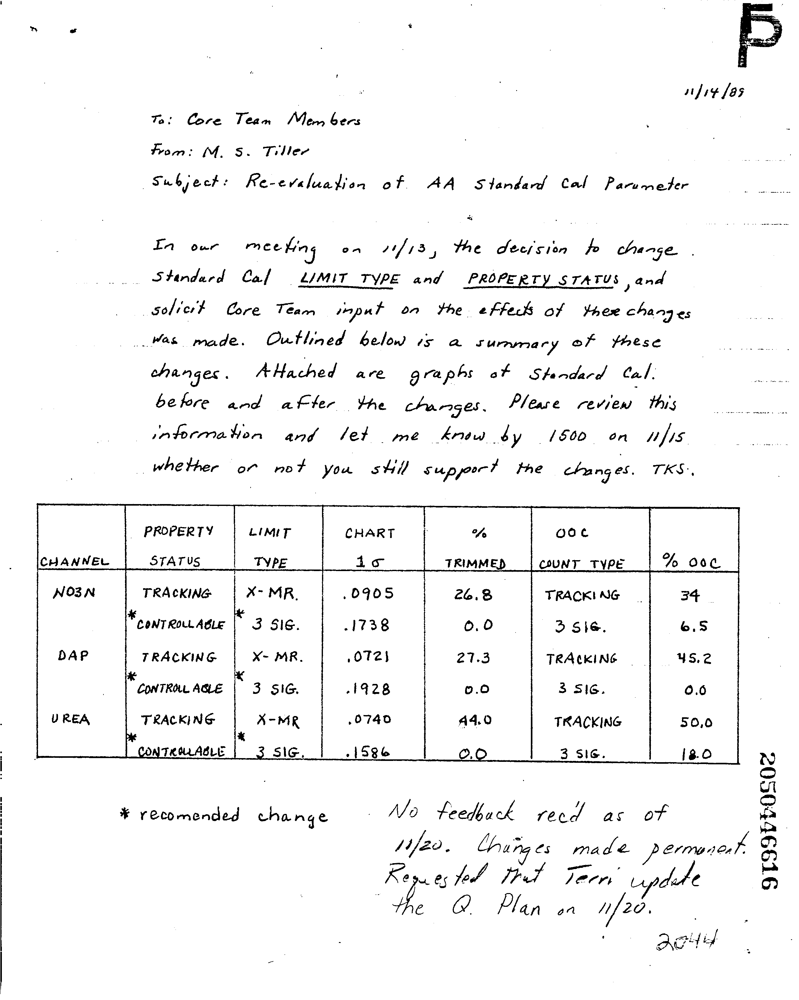 11/14/89
To: Core Team Members
From: M. S. Tiller
Subject: Re-evaluation of AA Standard Cal Parameter
In our meeting on 11/13, the decision to change
Standard Cal LIMIT TYPE and PROPERTY STATUS, and
solicit Core Team input on the effects of these changes
was made. Outlined below is a summary of these
changes. Attached are graphs of Standard Cal.
before and after the changes. Please review this
information and let me know by 1500 on 11/15
whether or not you still support the changes. TKS.
PROPERTY LIMIT CHART % OOC
CHANNEL STATUS TYPE 1 σ TRIMMED COUNT TYPE % OOC
NO3N TRACKING X-MR. .0905 26.8 TRACKING 34
* CONTROLLABLE * 3 SIG. .1738 0.0 3 SIG. 6.5
DAP TRACKING X-MR. .0721 27.3 TRACKING 45.2
* CONTROLLABLE * 3 SIG. .1928 0.0 3 SIG. 0.0
UREA TRACKING X-MR .0740 44.0 TRACKING 50.0
* CONTROLLABLE * 3 SIG. .1586 0.0 3 SIG. 18.0
* recomended change
No feedback rec'd as of
11/20. Changes made permanent.
Requested that Terri update
the Q. Plan on 11/20.
2044
2050446616